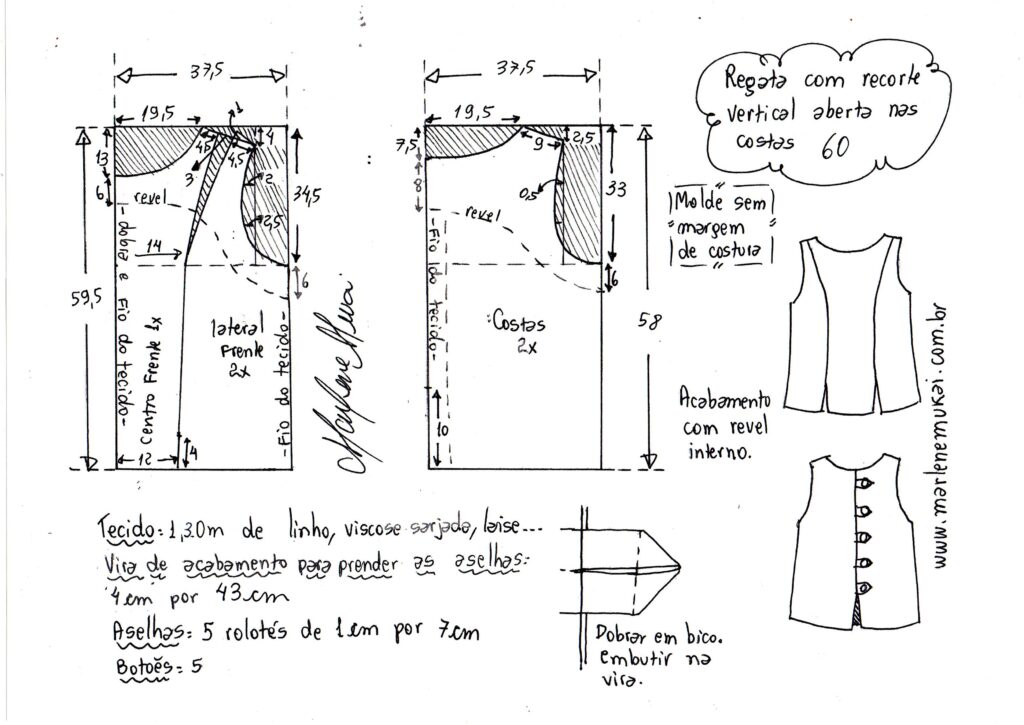 37,5
19,5
1
4
13
4,5
4,5
3
2
6
revel
34,5
2,5
14
6
59,5
-dobra e Fio do tecido-
Centro Frente 1x
lateral
Frente
2x
-Fio do tecido-
4
12
37,5
19,5
7,5
2,5
9
8
0,5
33
revel
6
-Fio do tecido-
:Costas
2x
58
10
Regata com recorte
vertical aberta nas
costas 60
Molde sem
margem
de costura
Acabamento
com revel
interno.
www.marlenemukai.com.br
Tecido: 1,30m de linho, viscose sarjada, laise...
Vira de acabamento para prender as aselhas:
4cm por 43cm
Aselhas: 5 rolotés de 1cm por 7cm
Botões: 5
Dobrar em bico.
embutir na
vira.